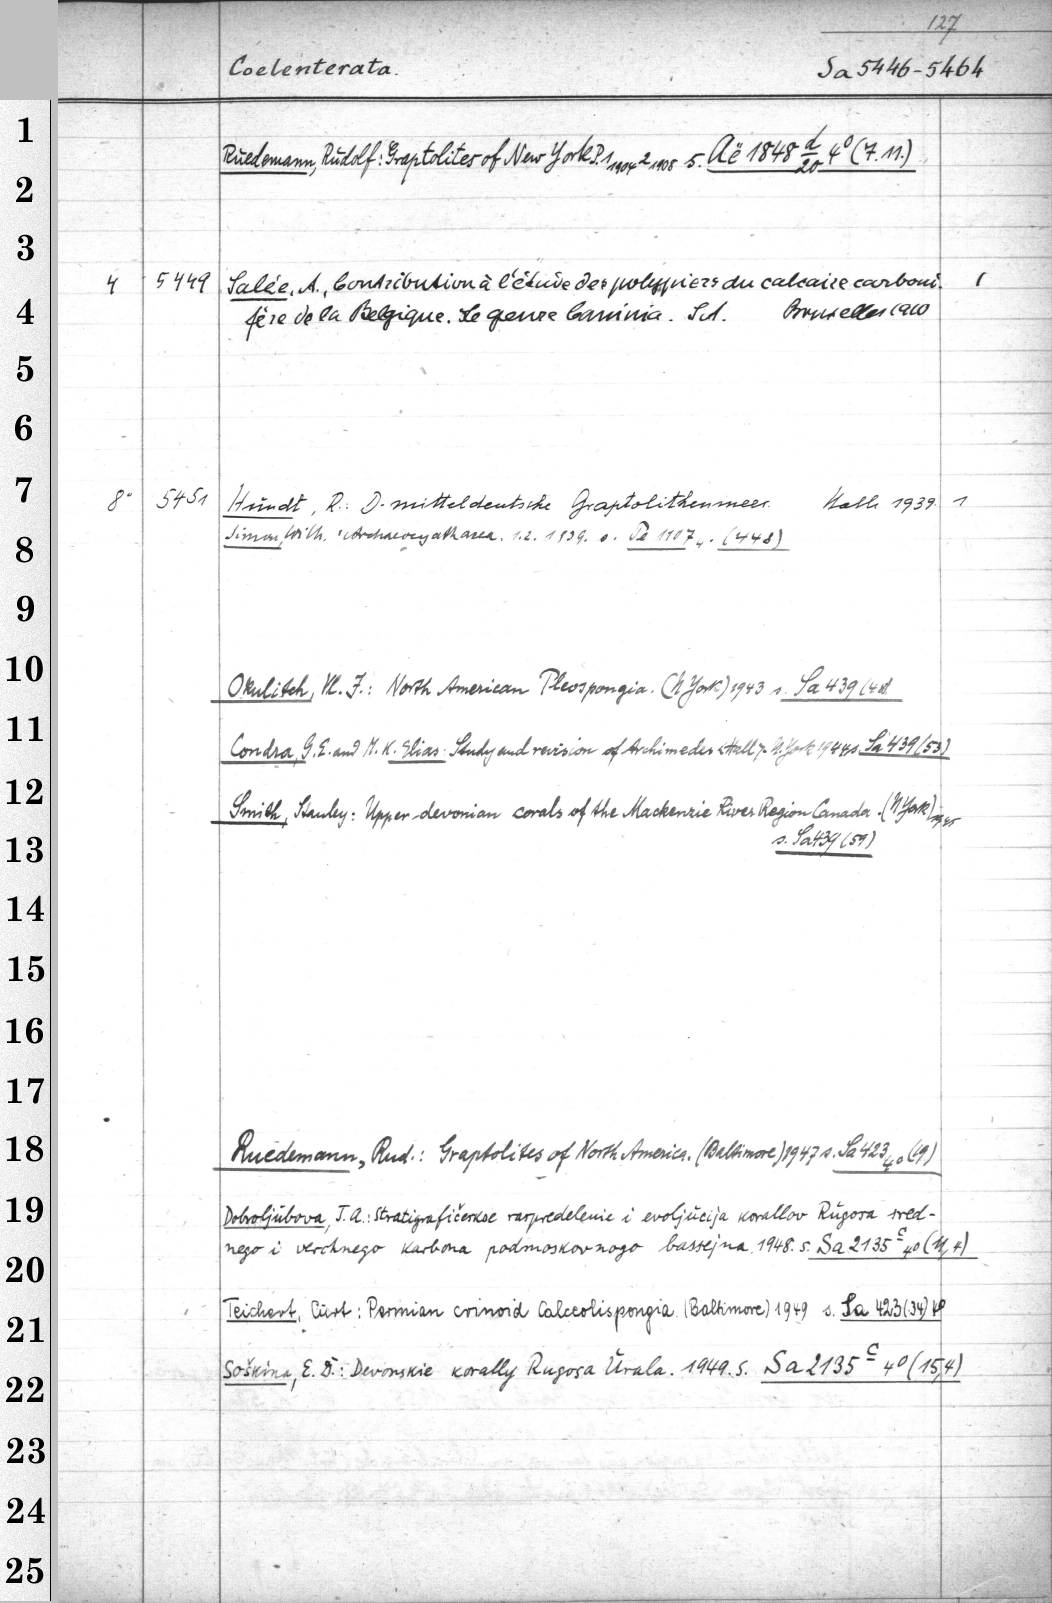 127
Coelenterata. Sa 5446-5464
1
Ruedemann, Rudolf: Graptolites of New York P.1 1904 2 1908 s. Aë 1848 d/20 4° (7. 11.)
2
3
4 5449 Salée, A., Contribution à l'étude des polypiers du calcaire carboni- 1
4
fère de la Belgique. Le genre Caninia. S.A. Bruxelles 1910
5
6
7
8° 5451 Hundt, R.: D. mitteldeutsche Graptolithenmeer. Halle 1939. 1
8
Simon, Wilh. Archaeocyathacea. 1.2. 1939. s. (448)
9
10
Okulitch, Vl. F.: North American Pleospongia. (N York) 1943 s. Sa 439 (48)
11
Condra, G.E. and M. K. Elias: Study and revision of Archimedes Hall). N. York 1944 s. Sa 439 (53)
12
Smith, Stanley: Upper devonian corals of the Mackenzie River Region Canada. (N York) 1945
13
s. Sa 439 (59)
14
15
16
17
18
Ruedemann, Rud.: Graptolites of North America. (Baltimore) 1947 s. Sa 423 4° (19)
19
Dobroljubova, T. A.: Stratigrafičeskoe raspredelenie i evoljucija korallov Rugosa sred-
nego i verchnego karbona podmoskovnogo bassejna. 1948. s. Sa 2135 c 4° (11,4)
20
21
Teichert, Curt: Permian crinoid Calceolispongia (Baltimore) 1949 s. Sa 423 (34) 4°
22
Soškina, E. D.: Devonskie korally Rugosa Urala. 1949. s. Sa 2135 c 4° (15,4)
23
24
25